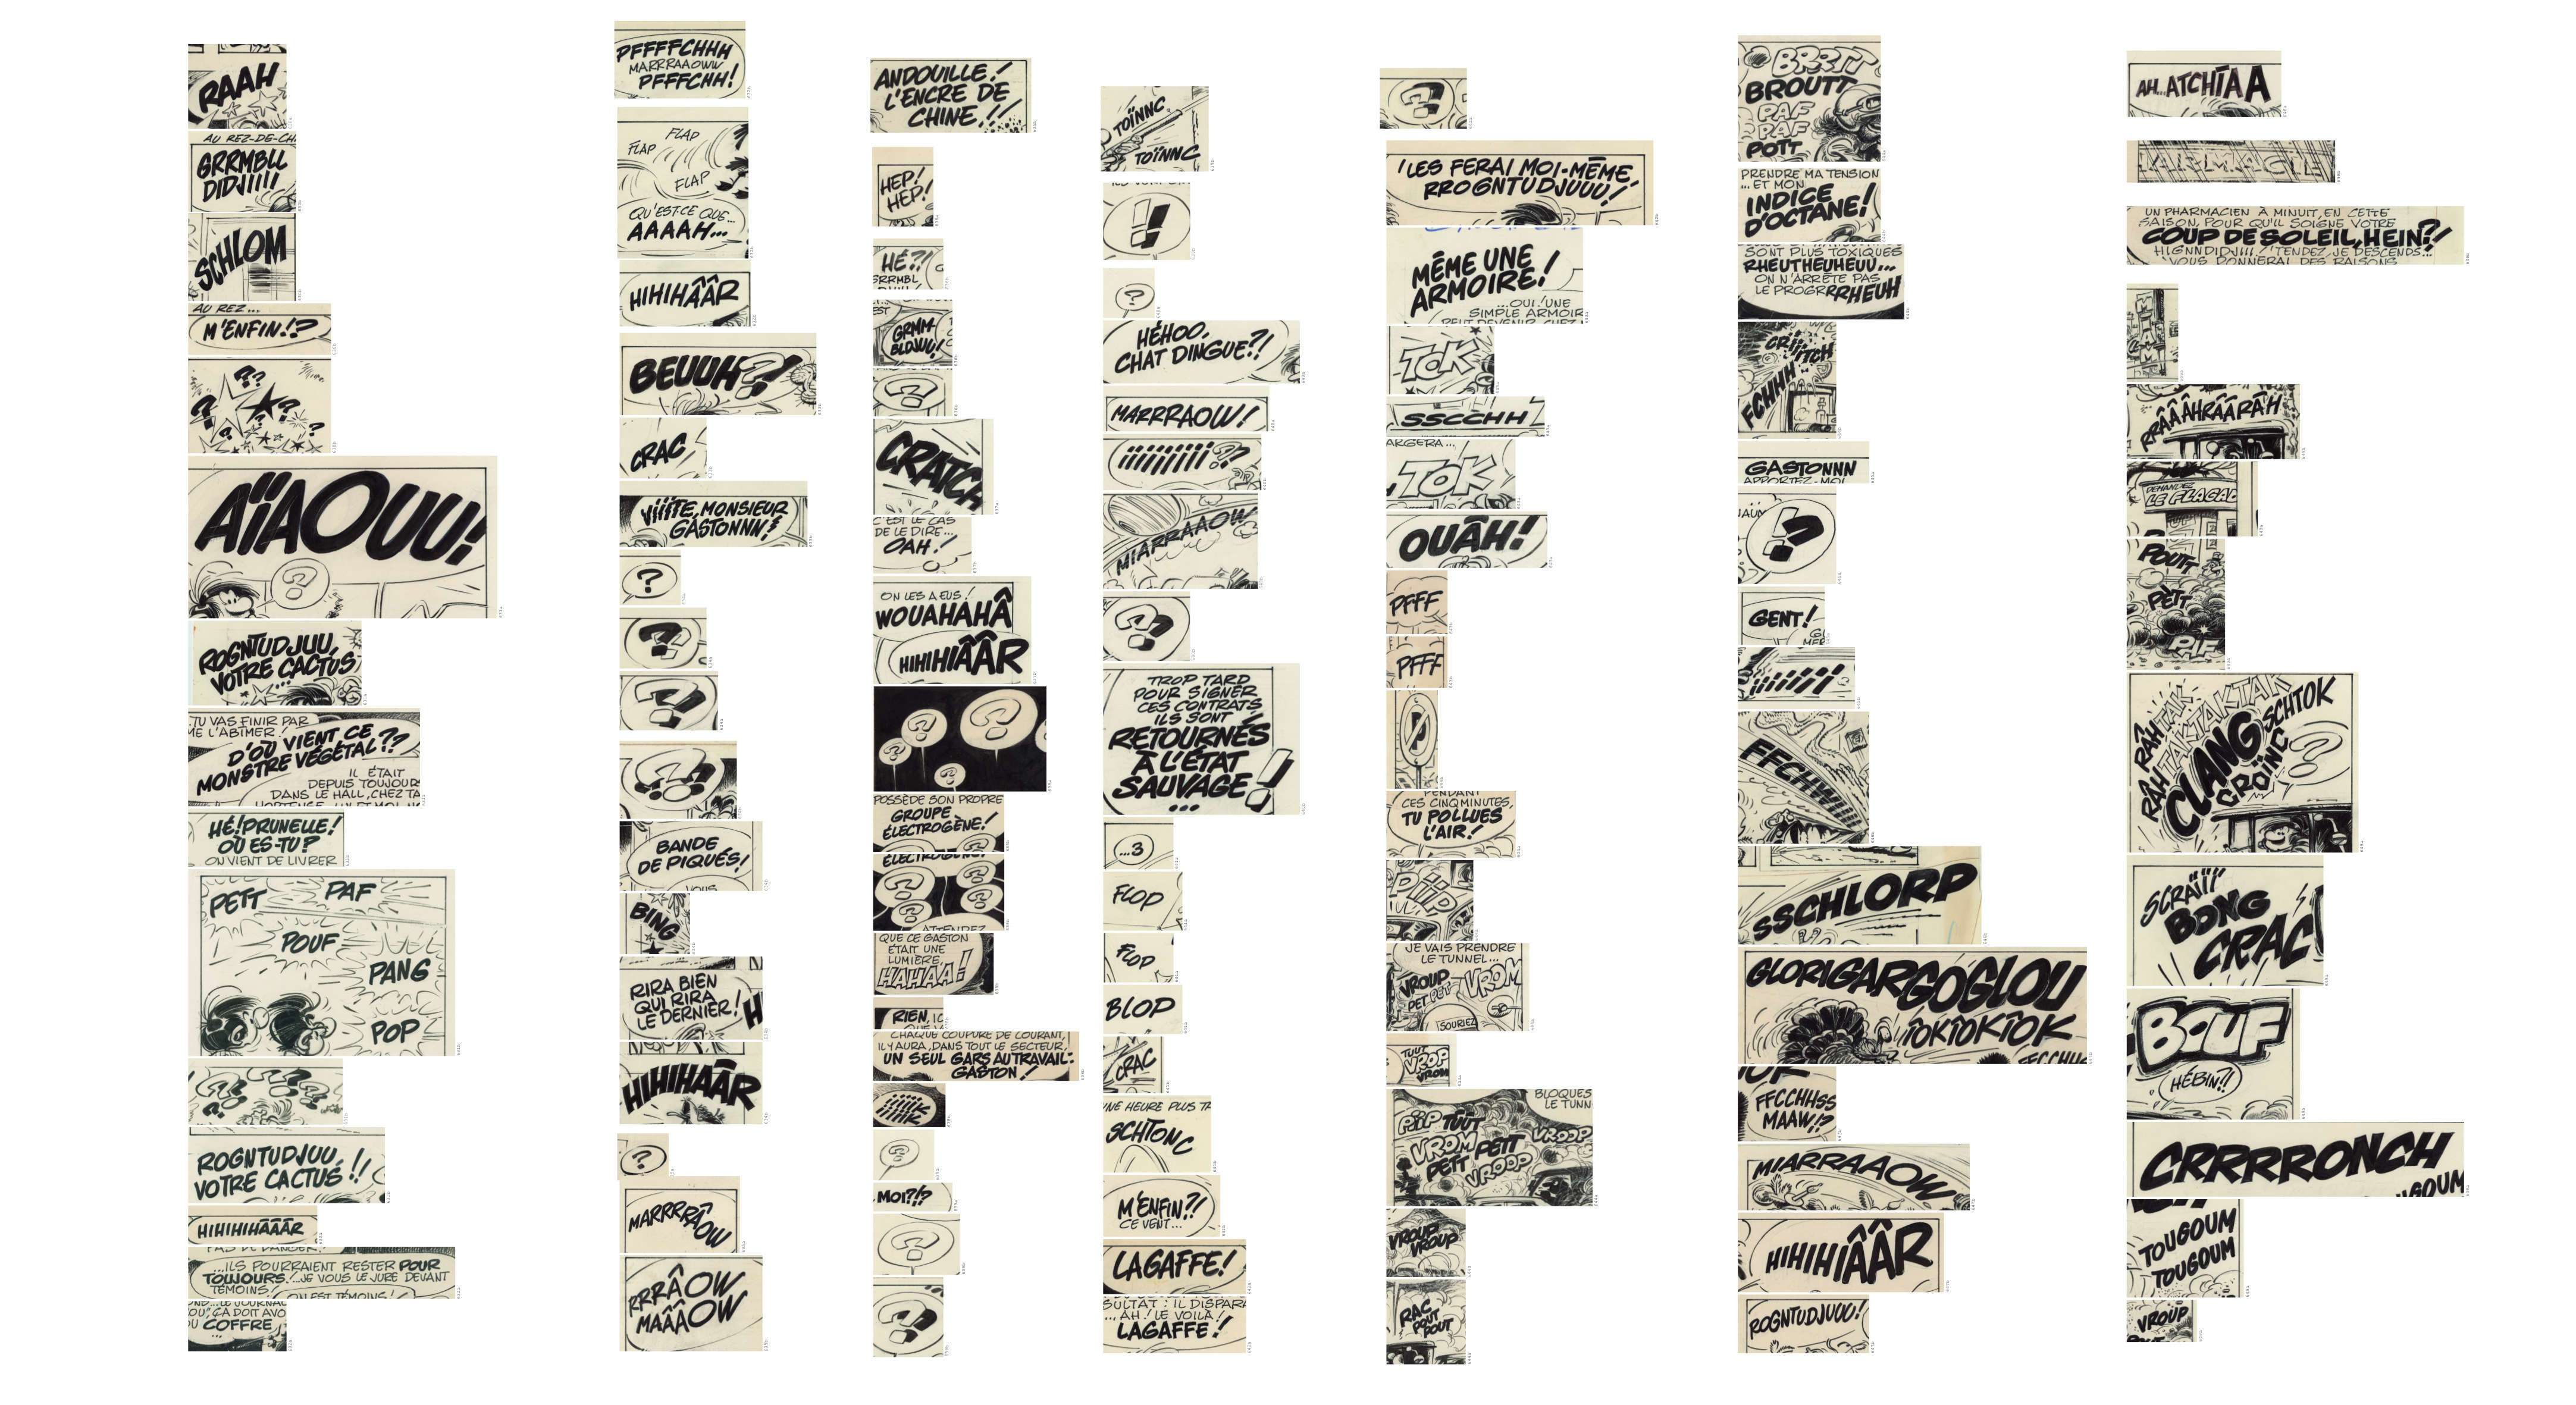 RAAH
AU REZ-DE-CH
GRRMBLL
DIDJIIII
SCHLOM
AU REZ...
M'ENFIN!?
??
?
?
?
?
AÏAOUU!
?
ROGNTUDJUU,
VOTRE CACTUS
TU VAS FINIR PAR
ME L'ABÎMER!
D'OÙ VIENT CE
MONSTRE VÉGÉTAL??
IL ÉTAIT
DEPUIS TOUJOURS
DANS LE HALL, CHEZ TA
HÉ! PRUNELLE!
OÙ ES-TU?
ON VIENT DE LIVRER
PETT
PAF
POUF
PANG
POP
? ? ? ? ?
ROGNTUDJUU,!!
VOTRE CACTUS
HIHIHIHÂÂÂR
PAS DE DANGER!
...ILS POURRAIENT RESTER POUR
TOUJOURS!..JE VOUS LE JURE DEVANT
TÉMOINS!
ON EST TÉMOINS!
LE JOURNAL
ÇA DOIT AVO
COFFRE
PFFFFCHHH
MARRRAAOWW
PFFFCHH!
FLAP
FLAP
FLAP
QU'EST-CE QUE...
AAAAH...
HIHIHÂÂR
BEUUH?!
CRAC
VIIITE, MONSIEUR
GASTONNN!
?
?
?
???
BANDE
DE PIQUÉS!
VOUS
BING
RIRA BIEN
QUI RIRA
LE DERNIER!
H
HIHIHÂÂR
?
MARRRRÂOW
RRRÂOW
MAÂÂOW
ANDOUILLE!
L'ENCRE DE
CHINE!!
HEP!
HEP!
HÉ?!
GRRMBL
EST
GRMM-
BLDJUU!
?
CRATCH
C'EST LE CAS
DE LE DIRE...
OAH!
ON LES A EUS!
WOUAHAHÂ
HIHIHIÂÂR
?
?
?
?
POSSÈDE SON PROPRE
GROUPE
ÉLECTROGÈNE!
ÉLECTROGÈNE!
?
?
?
?
ATTENDEZ
QUE CE GASTON
ÉTAIT UNE
LUMIÈRE,
HAHAA!
RIEN, IC
CHAQUE COUPURE DE COURANT,
IL Y AURA, DANS TOUT LE SECTEUR,
UN SEUL GARS AU TRAVAIL:
GASTON!
IIIIK
IIIIK
?
MOI?!?
?
?
TOÏNNC
TOÏNNC
!!
?
HÉHOO,
CHAT DINGUE?!
MARRRAOW!
iiiiiiiii??
MIARRAAOW
?
TROP TARD
POUR SIGNER
CES CONTRATS
ILS SONT
RETOURNÉS
À L'ÉTAT
SAUVAGE!
...
...3
FLOP
FLOP
BLOP
CRAC
UNE HEURE PLUS TA
SCHTONC
M'ENFIN?!
CE VENT...
LAGAFFE!
SULTAT: IL DISPARA
...AH! LE VOILÀ!
LAGAFFE!
?
'LES FERAI MOI-MÊME,
RROGNTUDJUUU!
MÊME UNE
ARMOIRE!
...OUI! UNE
SIMPLE ARMOIR
PEUT DEVENIR CHEZ
TOK
SSCCHH
ARGERA...
TOK
OUÂH!
PFFF
PFFF
PENDANT
CES CINQ MINUTES,
TU POLLUES
L'AIR!
PIIP
JE VAIS PRENDRE
LE TUNNEL...
VROUP
VROM
PET PET
SOURIEZ
TUUT
VROP
VROM
BLOQUÉS
LE TUNN
PIIP TUUT
VROM
PETT PETT
VROOP
VROOP
VROUP
VROUP
RAC
POUT
POUT
BRRTT
BROUTT
PAF
PAF
POTT
PRENDRE MA TENSION
... ET MON
INDICE
D'OCTANE!
SONT PLUS TOXIQUES
RHEUTHEUHEUU...
ON N'ARRÊTE PAS
LE PROGRRRHEUH
CRIIITCH
FCHHH
GASTONNN
APPORTEZ-MOI
!?
GENT!
iiiiiii
FFCHWII
SSCHLORP
GLORIGARGOGLOU
TOKTOKTOK
FFCCHHSS
MAAW!?
MIARRAAOW
HIHIHIÂÂR
ROGNTUDJUUU!
AH...ATCHÏAA
ARMACIE
UN PHARMACIEN À MINUIT, EN CETTE
SAISON, POUR QU'IL SOIGNE VOTRE
COUP DE SOLEIL, HEIN?!
HIGNNDIDJIII! TENDEZ, JE DESCENDS...
VOUS DONNERAI DES RAISONS
MIAM
RRÂÂÂHRÂÂRÂH
DEMANDEZ
LE FLAGAD
POUTT
PÈTT
PAF
RÂH RÂH RÂH
TAKTAKTAKTAK
CLANG
CROÏNC
SCHTOK
?
SCRAÏÏ
BONG
CRAC
BOUF
HÉBIN?!
CRRRRONCH
TOUGOUM
TOUGOUM
VROUP